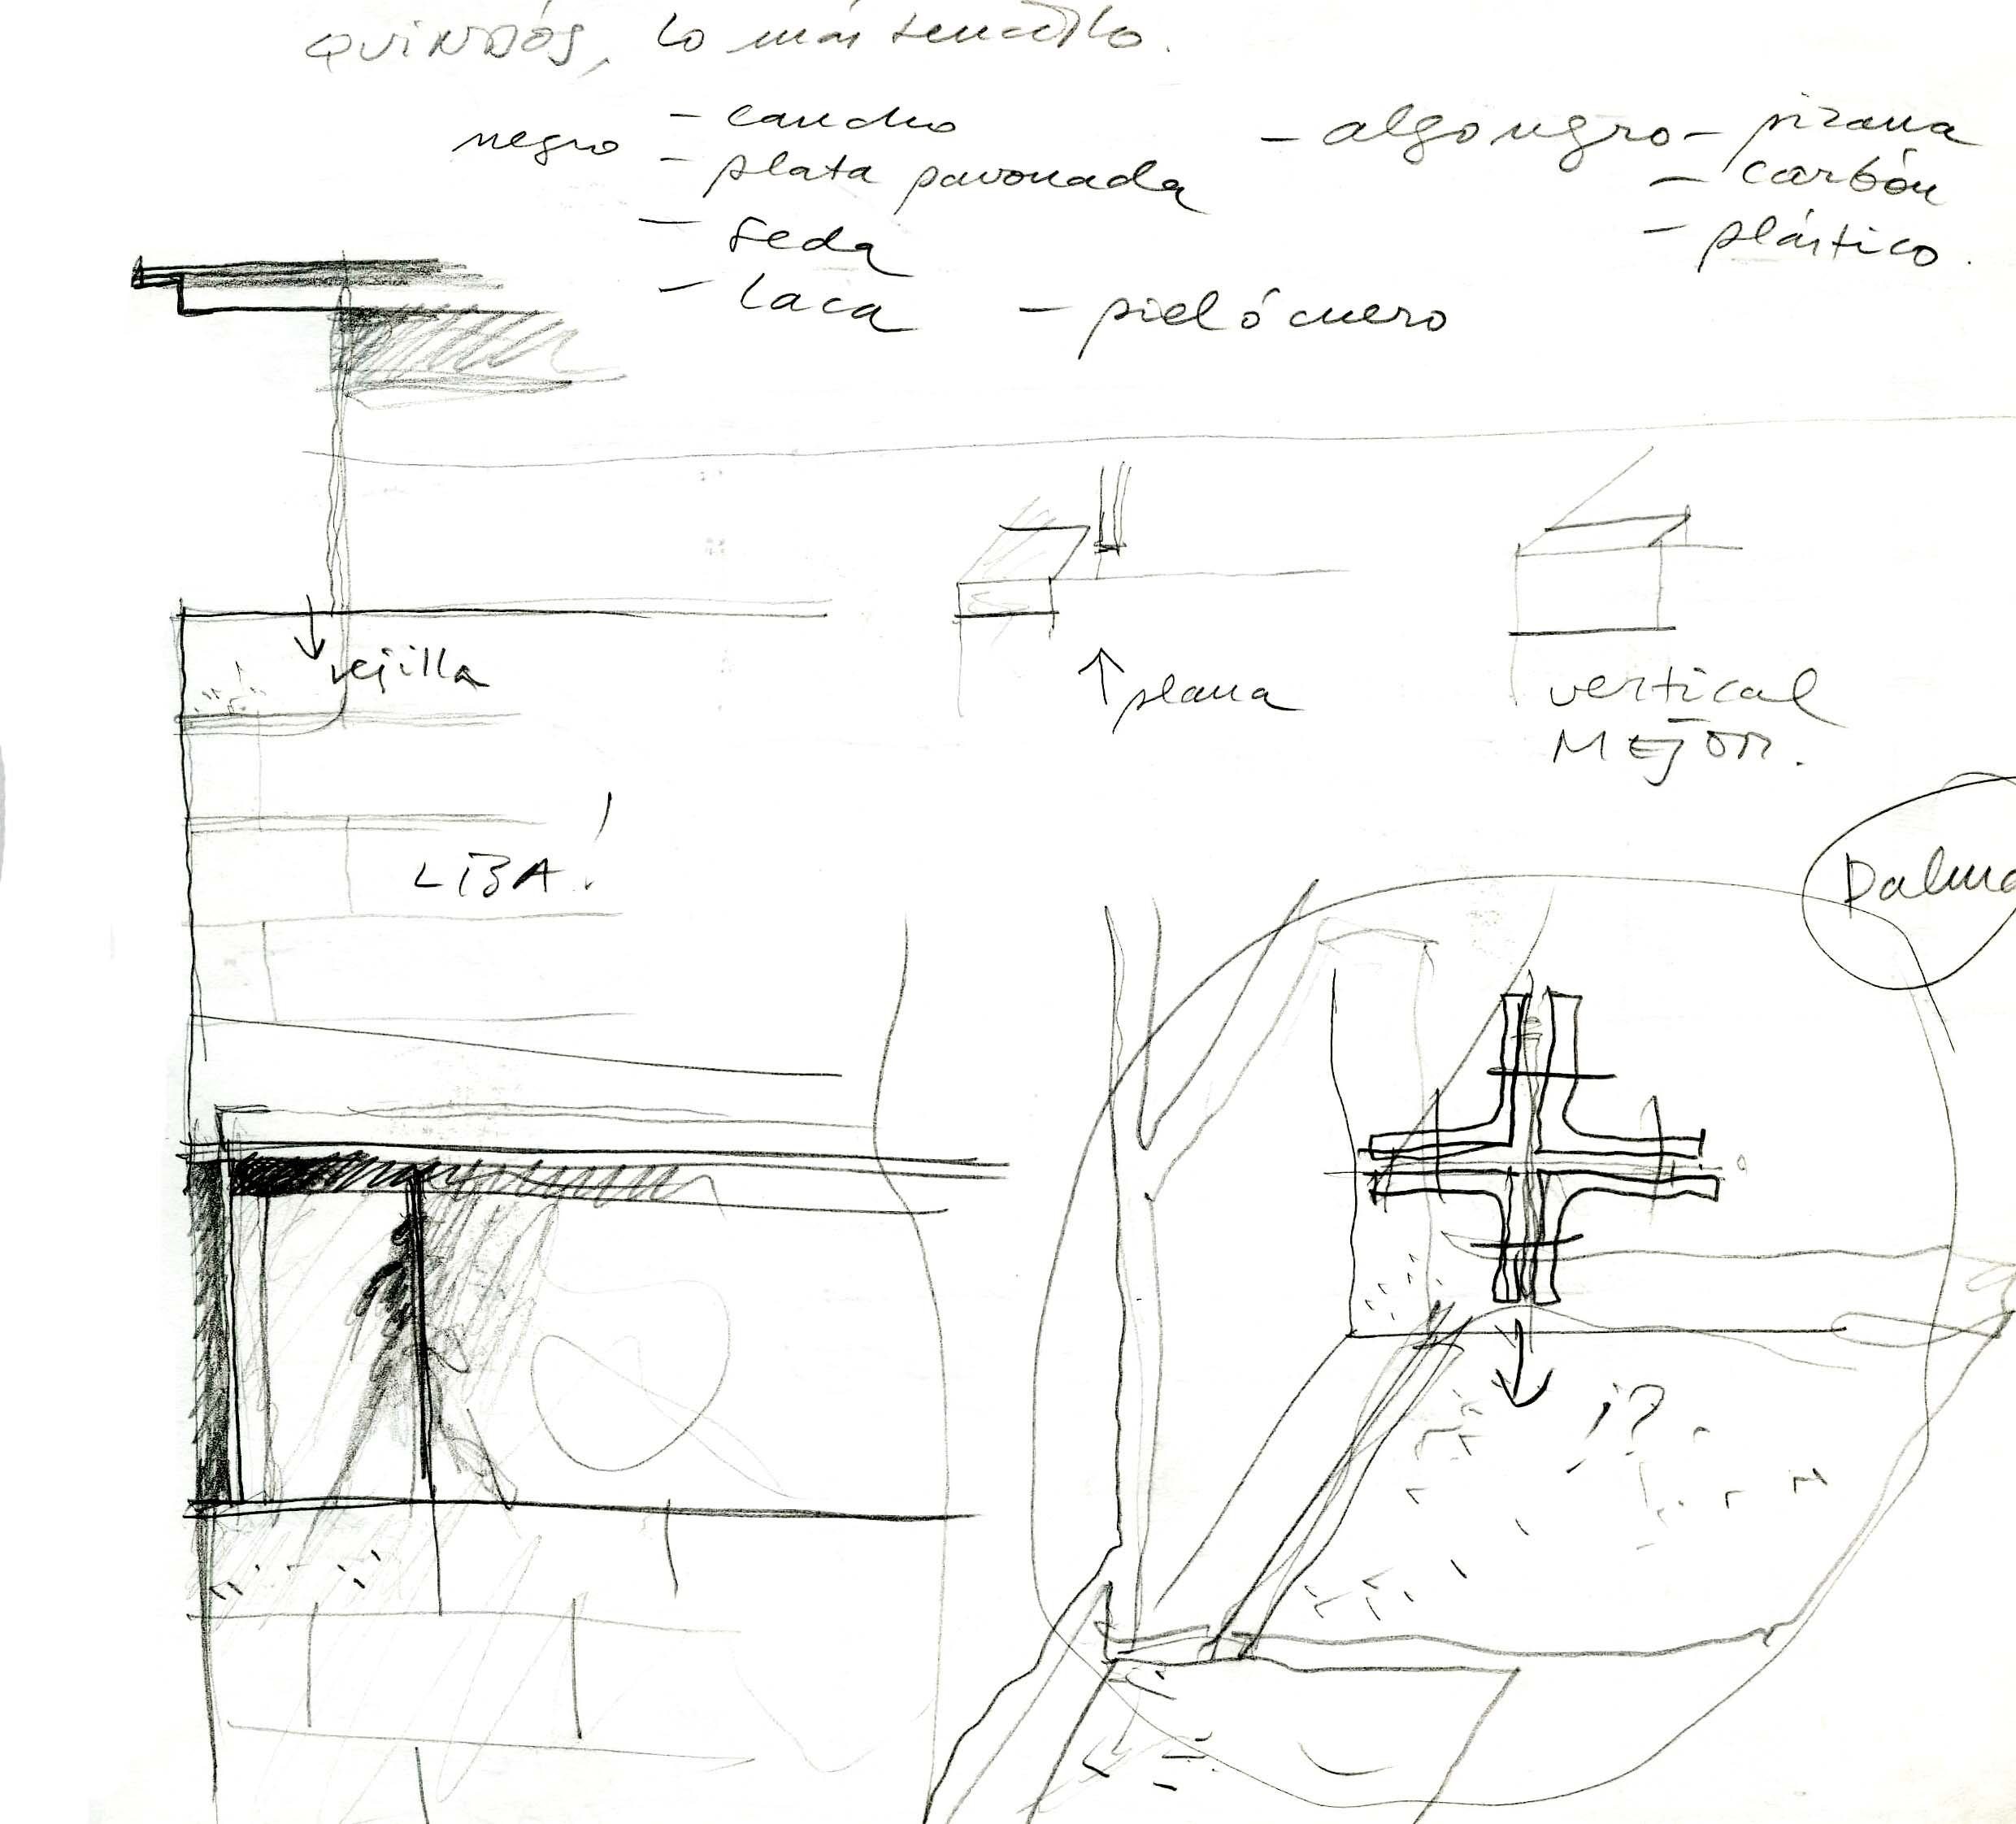 QUINDÓS, lo más sencillo.
negro - caucho
- plata pavonada
- seda
- laca - piel ó cuero
- algo negro - pizarra
- carbón
- plástico.
rejilla
plana
vertical
MEJOR.
LIBA!
¡?